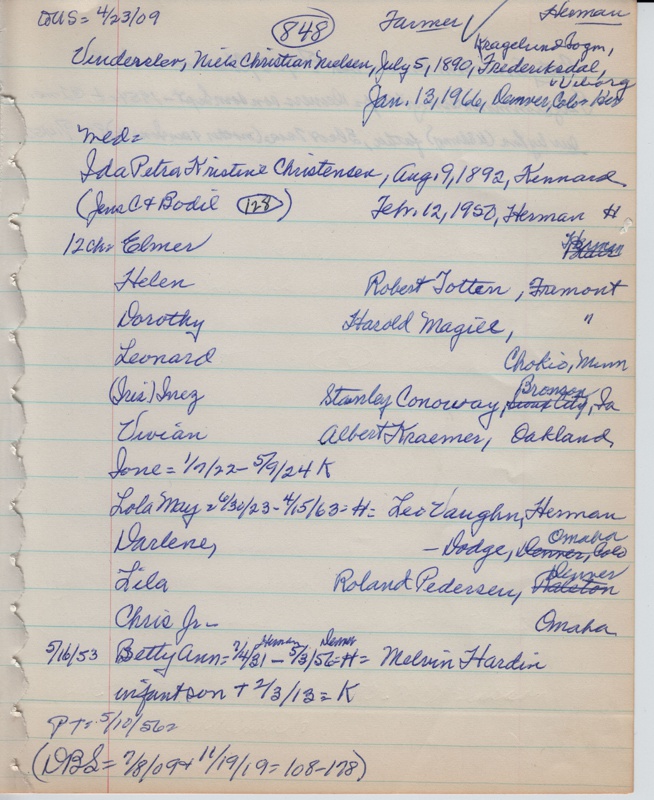 WUS = 4/23/09 848 Farmer ✓ Herman
Kragelund Sogn,
Vinderslev, Niels Christian Nielsen, July 5, 1890, Frederiksdal,
Viborg
Jan. 13, 1966, Denver, Colo =
med =
Ida Petra Kristine Christensen, Aug. 9, 1892, Kennard
(Jens C + Bodil 128) Febr. 12, 1950, Herman H
12 ch = Elmer Herman
Helen Robert Totten, Fremont
Dorothy Harold Magill, "
Leonard Chokio, Minn
Bronson
(Iris) Inez Stanley Conoway, Sioux City, Ia
Vivian Albert Kraemer, Oakland,
Ione = 1/7/22 - 5/9/24 K
Lola May = 6/30/23 - 4/15/63 = H = Leo Vaughn, Herman
Omaha
Darlene, - Dodge, Denver, Colo
Denver
Lila Roland Pedersen, Ralston
Chris Jr - Omaha
Herman Denver
5/16/53 Betty Ann = 7/4/31 - 5/3/56 = H = Melvin Hardin
infant son + 2/3/13 = K
PT = 5/10/56 =
(DBS = 7/8/09 + 11/19/19 = 108-178)